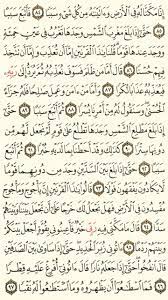 إِنَّا مَكَّنَّا لَهُۥ فِي ٱلْأَرْضِ وَءَاتَيْنَٰهُ مِن كُلِّ شَيْءٍ سَبَبًا ٨٤ فَأَتْبَعَ سَبَبًا
٨٥ حَتَّىٰٓ إِذَا بَلَغَ مَغْرِبَ ٱلشَّمْسِ وَجَدَهَا تَغْرُبُ فِي عَيْنٍ حَمِئَةٍ
وَوَجَدَ عِندَهَا قَوْمًا قُلْنَا يَٰذَا ٱلْقَرْنَيْنِ إِمَّآ أَن تُعَذِّبَ وَإِمَّآ أَن تَتَّخِذَ
فِيهِمْ حُسْنًا ٨٦ قَالَ أَمَّا مَن ظَلَمَ فَسَوْفَ نُعَذِّبُهُۥ ثُمَّ يُرَدُّ إِلَىٰ رَبِّهِۦ
فَيُعَذِّبُهُۥ عَذَابًا نُّكْرًا ٨٧ وَأَمَّا مَنْ ءَامَنَ وَعَمِلَ صَٰلِحًا فَلَهُۥ جَزَآءً
ٱلْحُسْنَىٰ وَسَنَقُولُ لَهُۥ مِنْ أَمْرِنَا يُسْرًا ٨٨ ثُمَّ أَتْبَعَ سَبَبًا ٨٩
حَتَّىٰٓ إِذَا بَلَغَ مَطْلِعَ ٱلشَّمْسِ وَجَدَهَا تَطْلُعُ عَلَىٰ قَوْمٍ لَّمْ نَجْعَل لَّهُم
مِّن دُونِهَا سِتْرًا ٩٠ كَذَٰلِكَ وَقَدْ أَحَطْنَا بِمَا لَدَيْهِ خُبْرًا ٩١ ثُمَّ أَتْبَعَ
سَبَبًا ٩٢ حَتَّىٰٓ إِذَا بَلَغَ بَيْنَ ٱلسَّدَّيْنِ وَجَدَ مِن دُونِهِمَا قَوْمًا لَّا
يَكَادُونَ يَفْقَهُونَ قَوْلًا ٩٣ قَالُوا۟ يَٰذَا ٱلْقَرْنَيْنِ إِنَّ يَأْجُوجَ وَمَأْجُوجَ
مُفْسِدُونَ فِي ٱلْأَرْضِ فَهَلْ نَجْعَلُ لَكَ خَرْجًا عَلَىٰٓ أَن تَجْعَلَ بَيْنَنَا وَبَيْنَهُمْ
سَدًّا ٩٤ قَالَ مَا مَكَّنِّي فِيهِ رَبِّي خَيْرٌ فَأَعِينُونِي بِقُوَّةٍ أَجْعَلْ بَيْنَكُمْ
وَبَيْنَهُمْ رَدْمًا ٩٥ ءَاتُونِي زُبَرَ ٱلْحَدِيدِ حَتَّىٰٓ إِذَا سَاوَىٰ بَيْنَ ٱلصَّدَفَيْنِ
قَالَ ٱنفُخُوا۟ حَتَّىٰٓ إِذَا جَعَلَهُۥ نَارًا قَالَ ءَاتُونِيٓ أُفْرِغْ عَلَيْهِ قِطْرًا
٩٦ فَمَا ٱسْطَٰعُوٓا۟ أَن يَظْهَرُوهُ وَمَا ٱسْتَطَٰعُوا۟ لَهُۥ نَقْبًا ٩٧